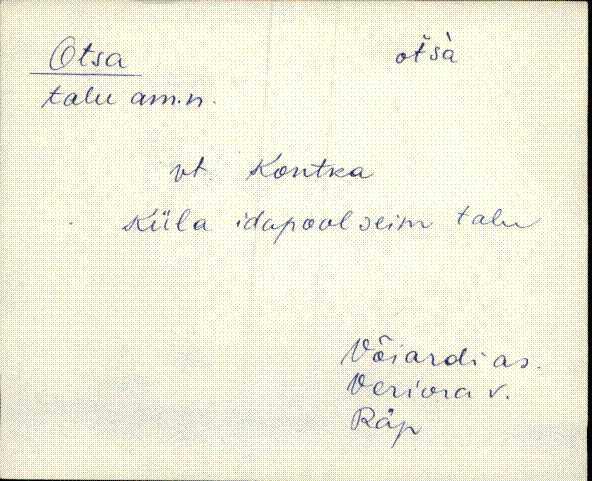 Otsa otšà
talu am.n.
vt. Kontka
Küla idapoolseim talu
Võiardi as.
Veriora v.
Räp